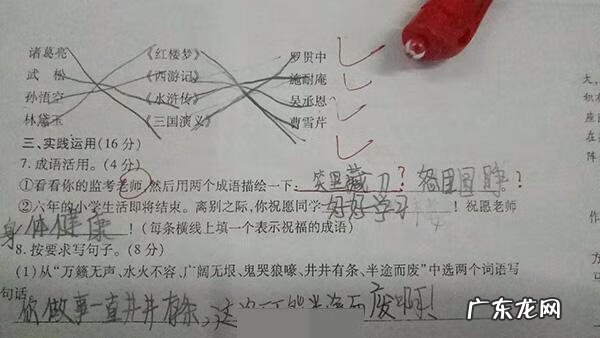 诸葛亮 《红楼梦》 罗贯中
武 松 《西游记》 施耐庵
孙悟空 《水浒传》 吴承恩
林黛玉 《三国演义》 曹雪芹
三、实践运用(16 分)
7. 成语活用。(4 分)
①看看你的监考老师,然后用两个成语描绘一下: 笑里藏刀? 贼眉
②六年的小学生活即将结束。离别之际,你祝愿同学 好好学习 !祝愿老师
身体健康 !(每条横线上填一个表示祝福的成语)
8. 按要求写句子。(8 分)
(1)从“万籁无声、水火不容、广阔无垠、鬼哭狼嚎、井井有条、半途而废”中选两个词语写
句话
你做事一直井井有条,这 废啊!
大,
积
座
在
作
方
广东龙网